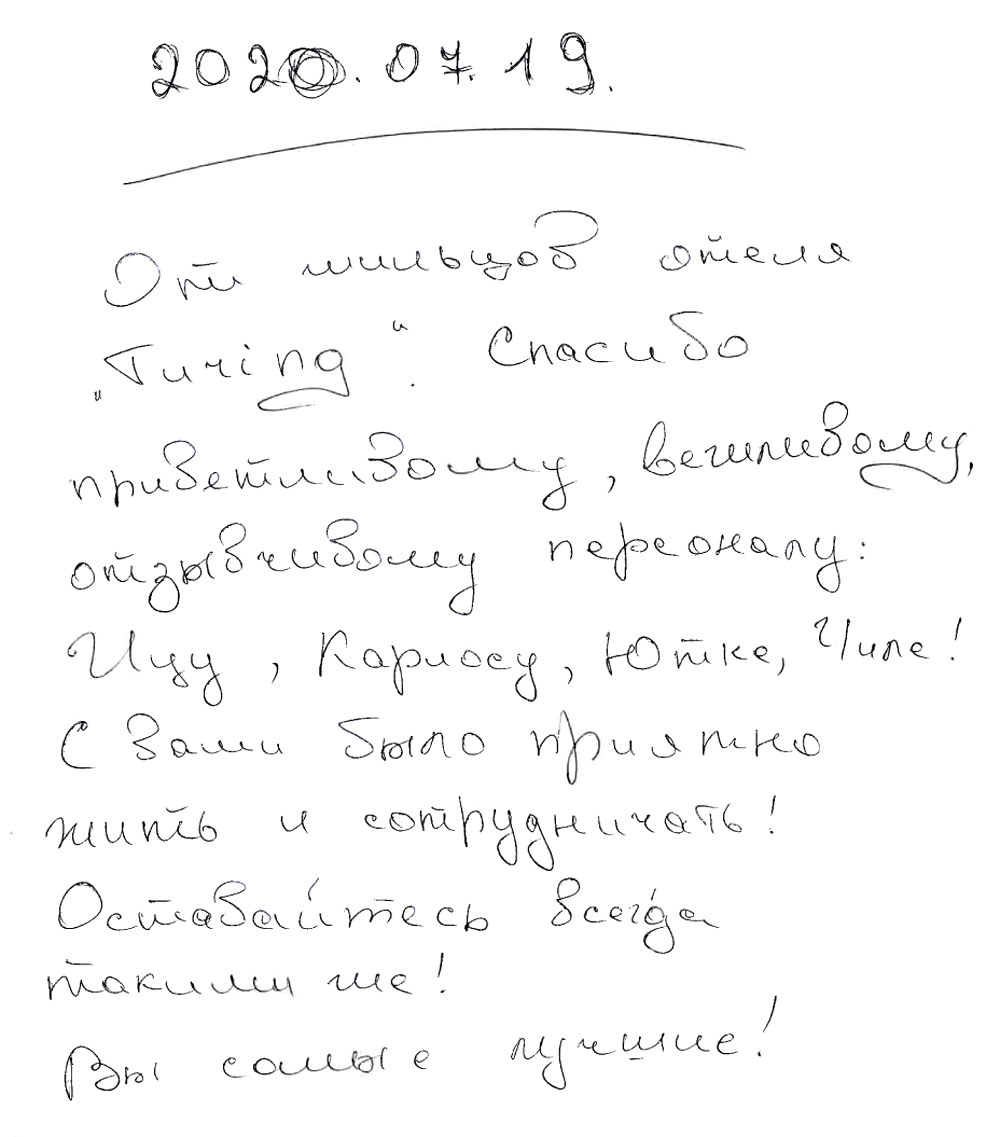 2020.07.19.
От жильцов отеля
„Turing“. Спасибо
приветливому, вежливому,
отзывчивому персоналу:
Ицу, Карлосу, Ютке, Чиле!
С Вами было приятно
жить и сотрудничать!
Оставайтесь всегда
такими же!
Вы самые лучшие!